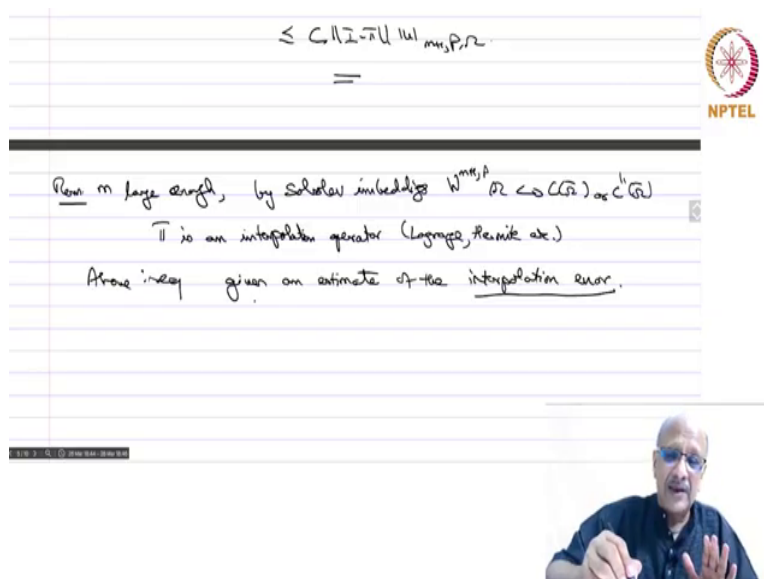 ≤ C ||I-Π|| |u|_{m+1,p,Ω}.
NPTEL
Rem m large enough, by Sobolev imbedding W^{m+1,p}(Ω) ↪ C(Ω̄) or C^1(Ω̄)
Π is an interpolation operator (Lagrange, Hermite etc.)
Above ineq given an estimate of the interpolation error.